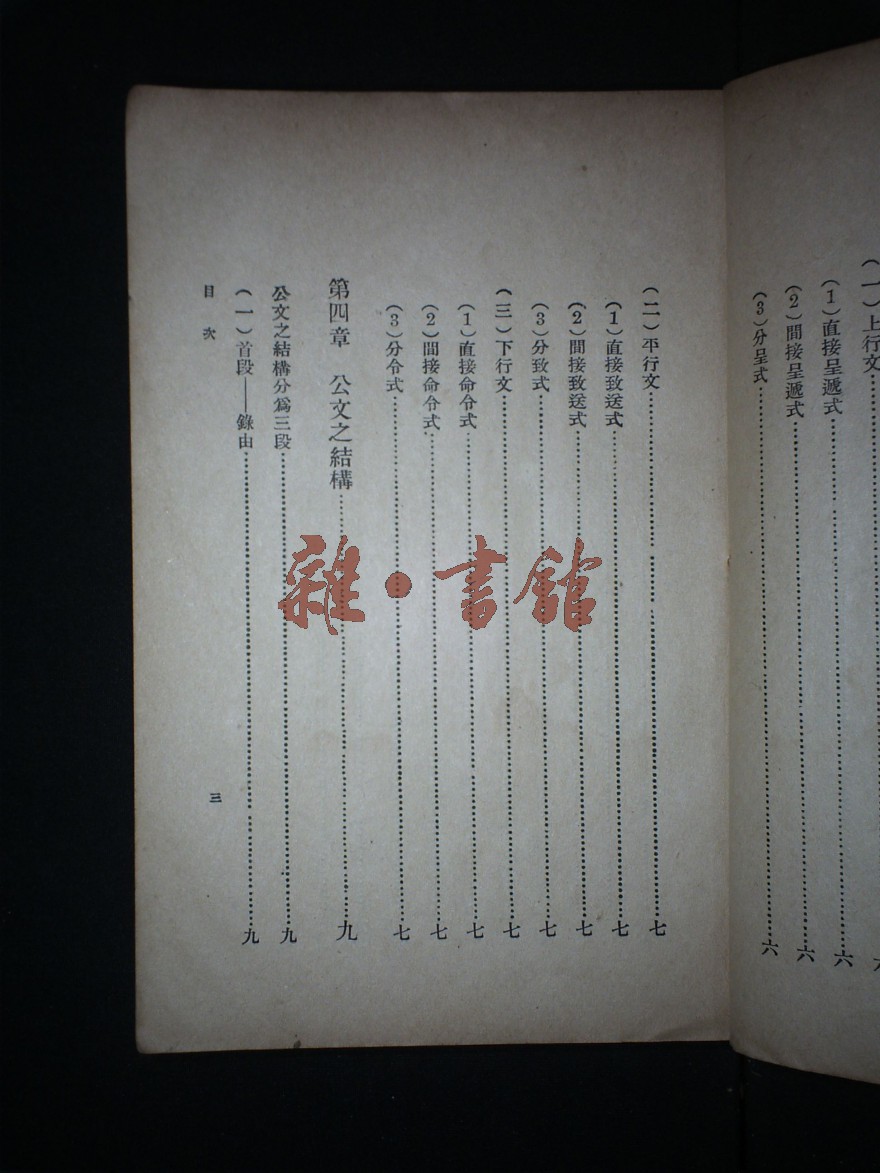 (一)上行文
(1)直接呈遞式……六
(2)間接呈遞式……六
(3)分呈式……六
(二)平行文……七
(1)直接致送式……七
(2)間接致送式……七
(3)分致式……七
(三)下行文……七
(1)直接命令式……七
(2)間接命令式……七
(3)分令式……七
第四章 公文之結構……九
公文之結構分爲三段……九
(一)首段——錄由……九
目次
三
雜·書館